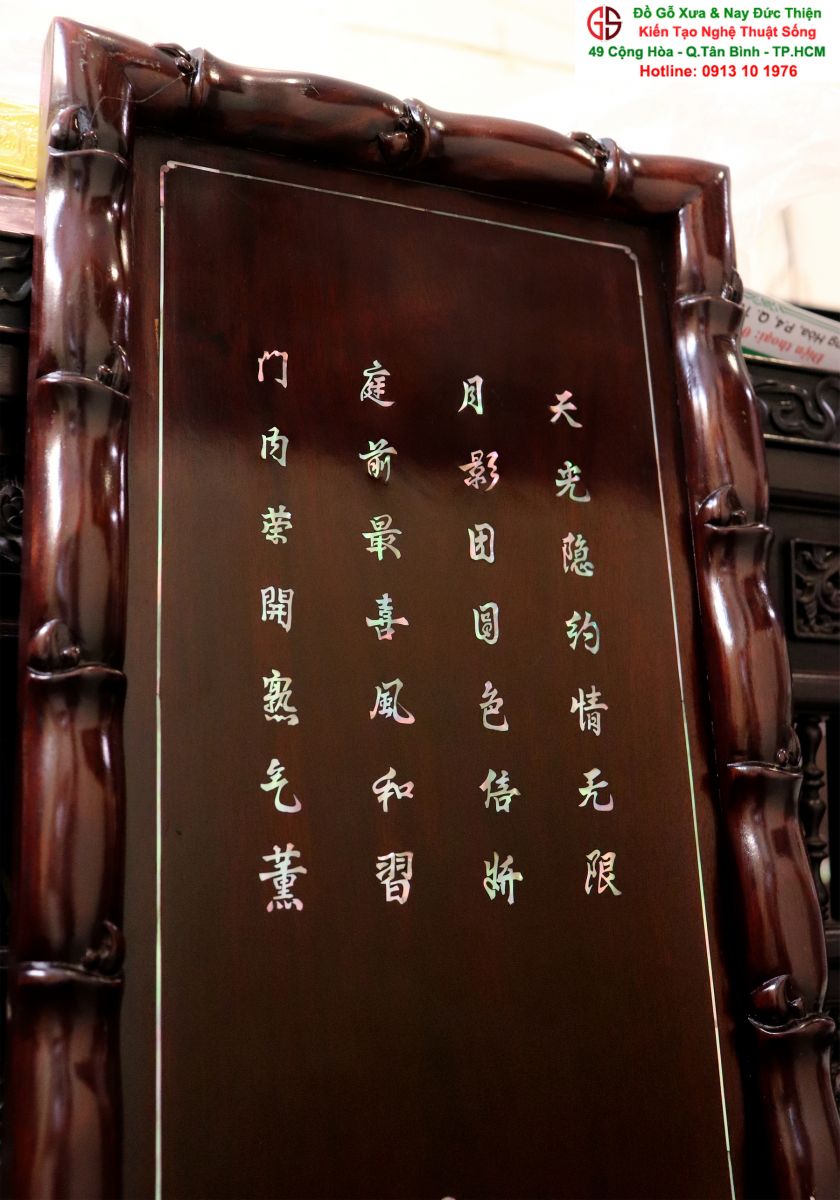 Đồ Gỗ Xưa & Nay Đức Thiện
Kiến Tạo Nghệ Thuật Sống
49 Cộng Hòa - Q.Tân Bình - TP.HCM
Hotline: 0913 10 1976
GS
天光隐约情无限
月影团圓色倍妍
庭前最喜風和習
门内荣開熟气薰
ng Hòa, P4, Q. T
Điện thoại: 0